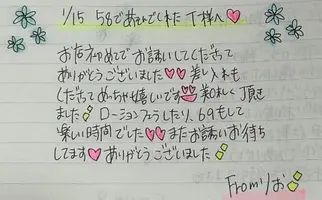 1/15 58であそびでくれた T様へ
お店初めてでお誘いしてくださって
ありがとうございました 差し入れも
くださってめっちゃ嬉しいです 美味しく頂き
ました ローションプレイしたり、69もして
楽しい時間でした またお誘いお待ち
してます ありがとうございました
Fromりお